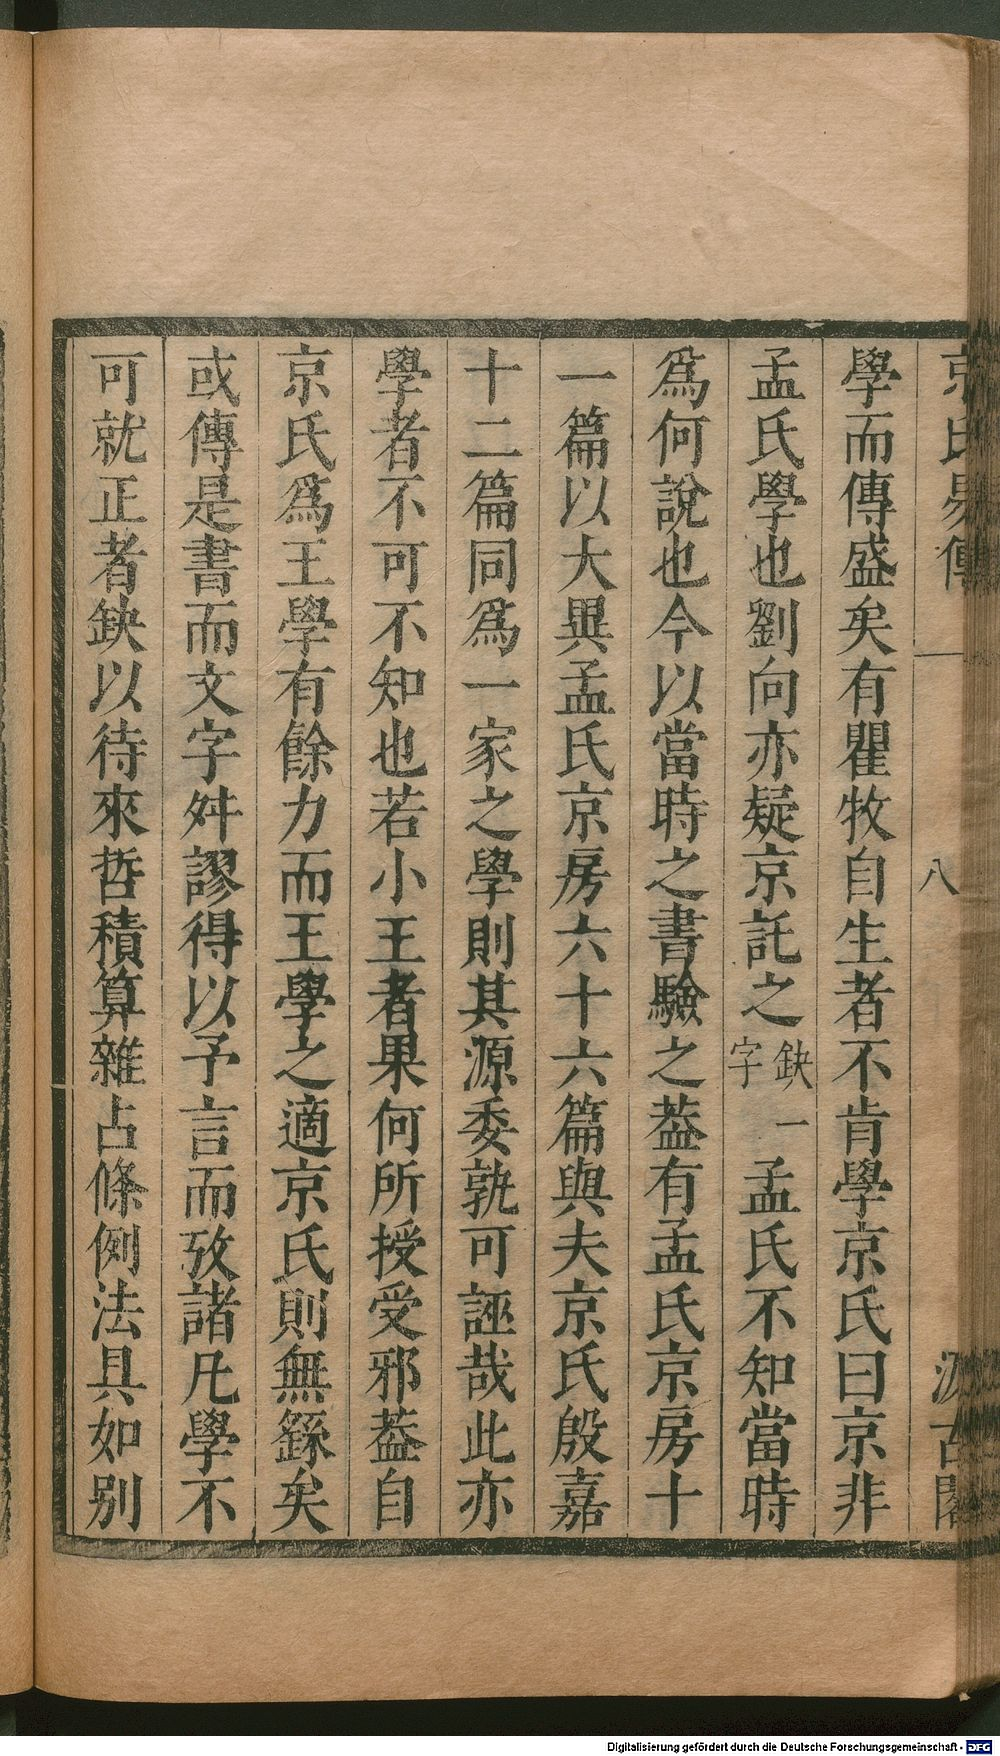 京氏易傳 八 汲古閣
學而傳盛矣有瞿牧自生者不肯學京氏曰京非
孟氏學也劉向亦疑京託之缺一字孟氏不知當時
爲何說也今以當時之書驗之葢有孟氏京房十
一篇以大異孟氏京房六十六篇與夫京氏殷嘉
十二篇同爲一家之學則其源委孰可誣哉此亦
學者不可不知也若小王者果何所授受邪葢自
京氏爲王學有餘力而王學之適京氏則無繇矣
或傳是書而文字舛謬得以予言而攷諸凡學不
可就正者缺以待來哲積算雜占條例法具如别
Digitalisierung gefördert durch die Deutsche Forschungsgemeinschaft - DFG